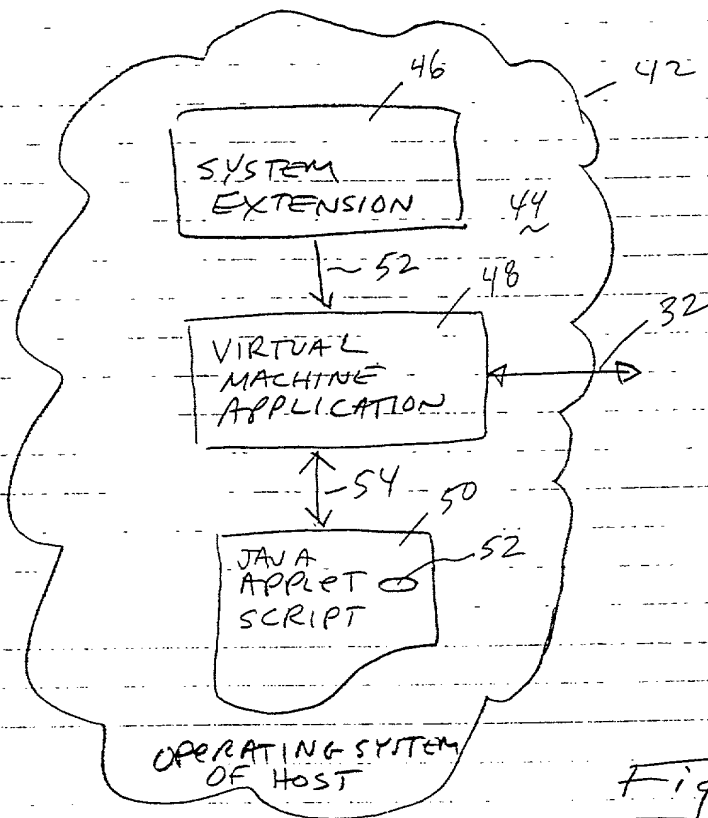 46
42
SYSTEM
EXTENSION
44
~ 52
48
32
VIRTUAL
MACHINE
APPLICATION
54
50
52
JAVA
APPLET
SCRIPT
OPERATING SYSTEM
OF HOST
Fig